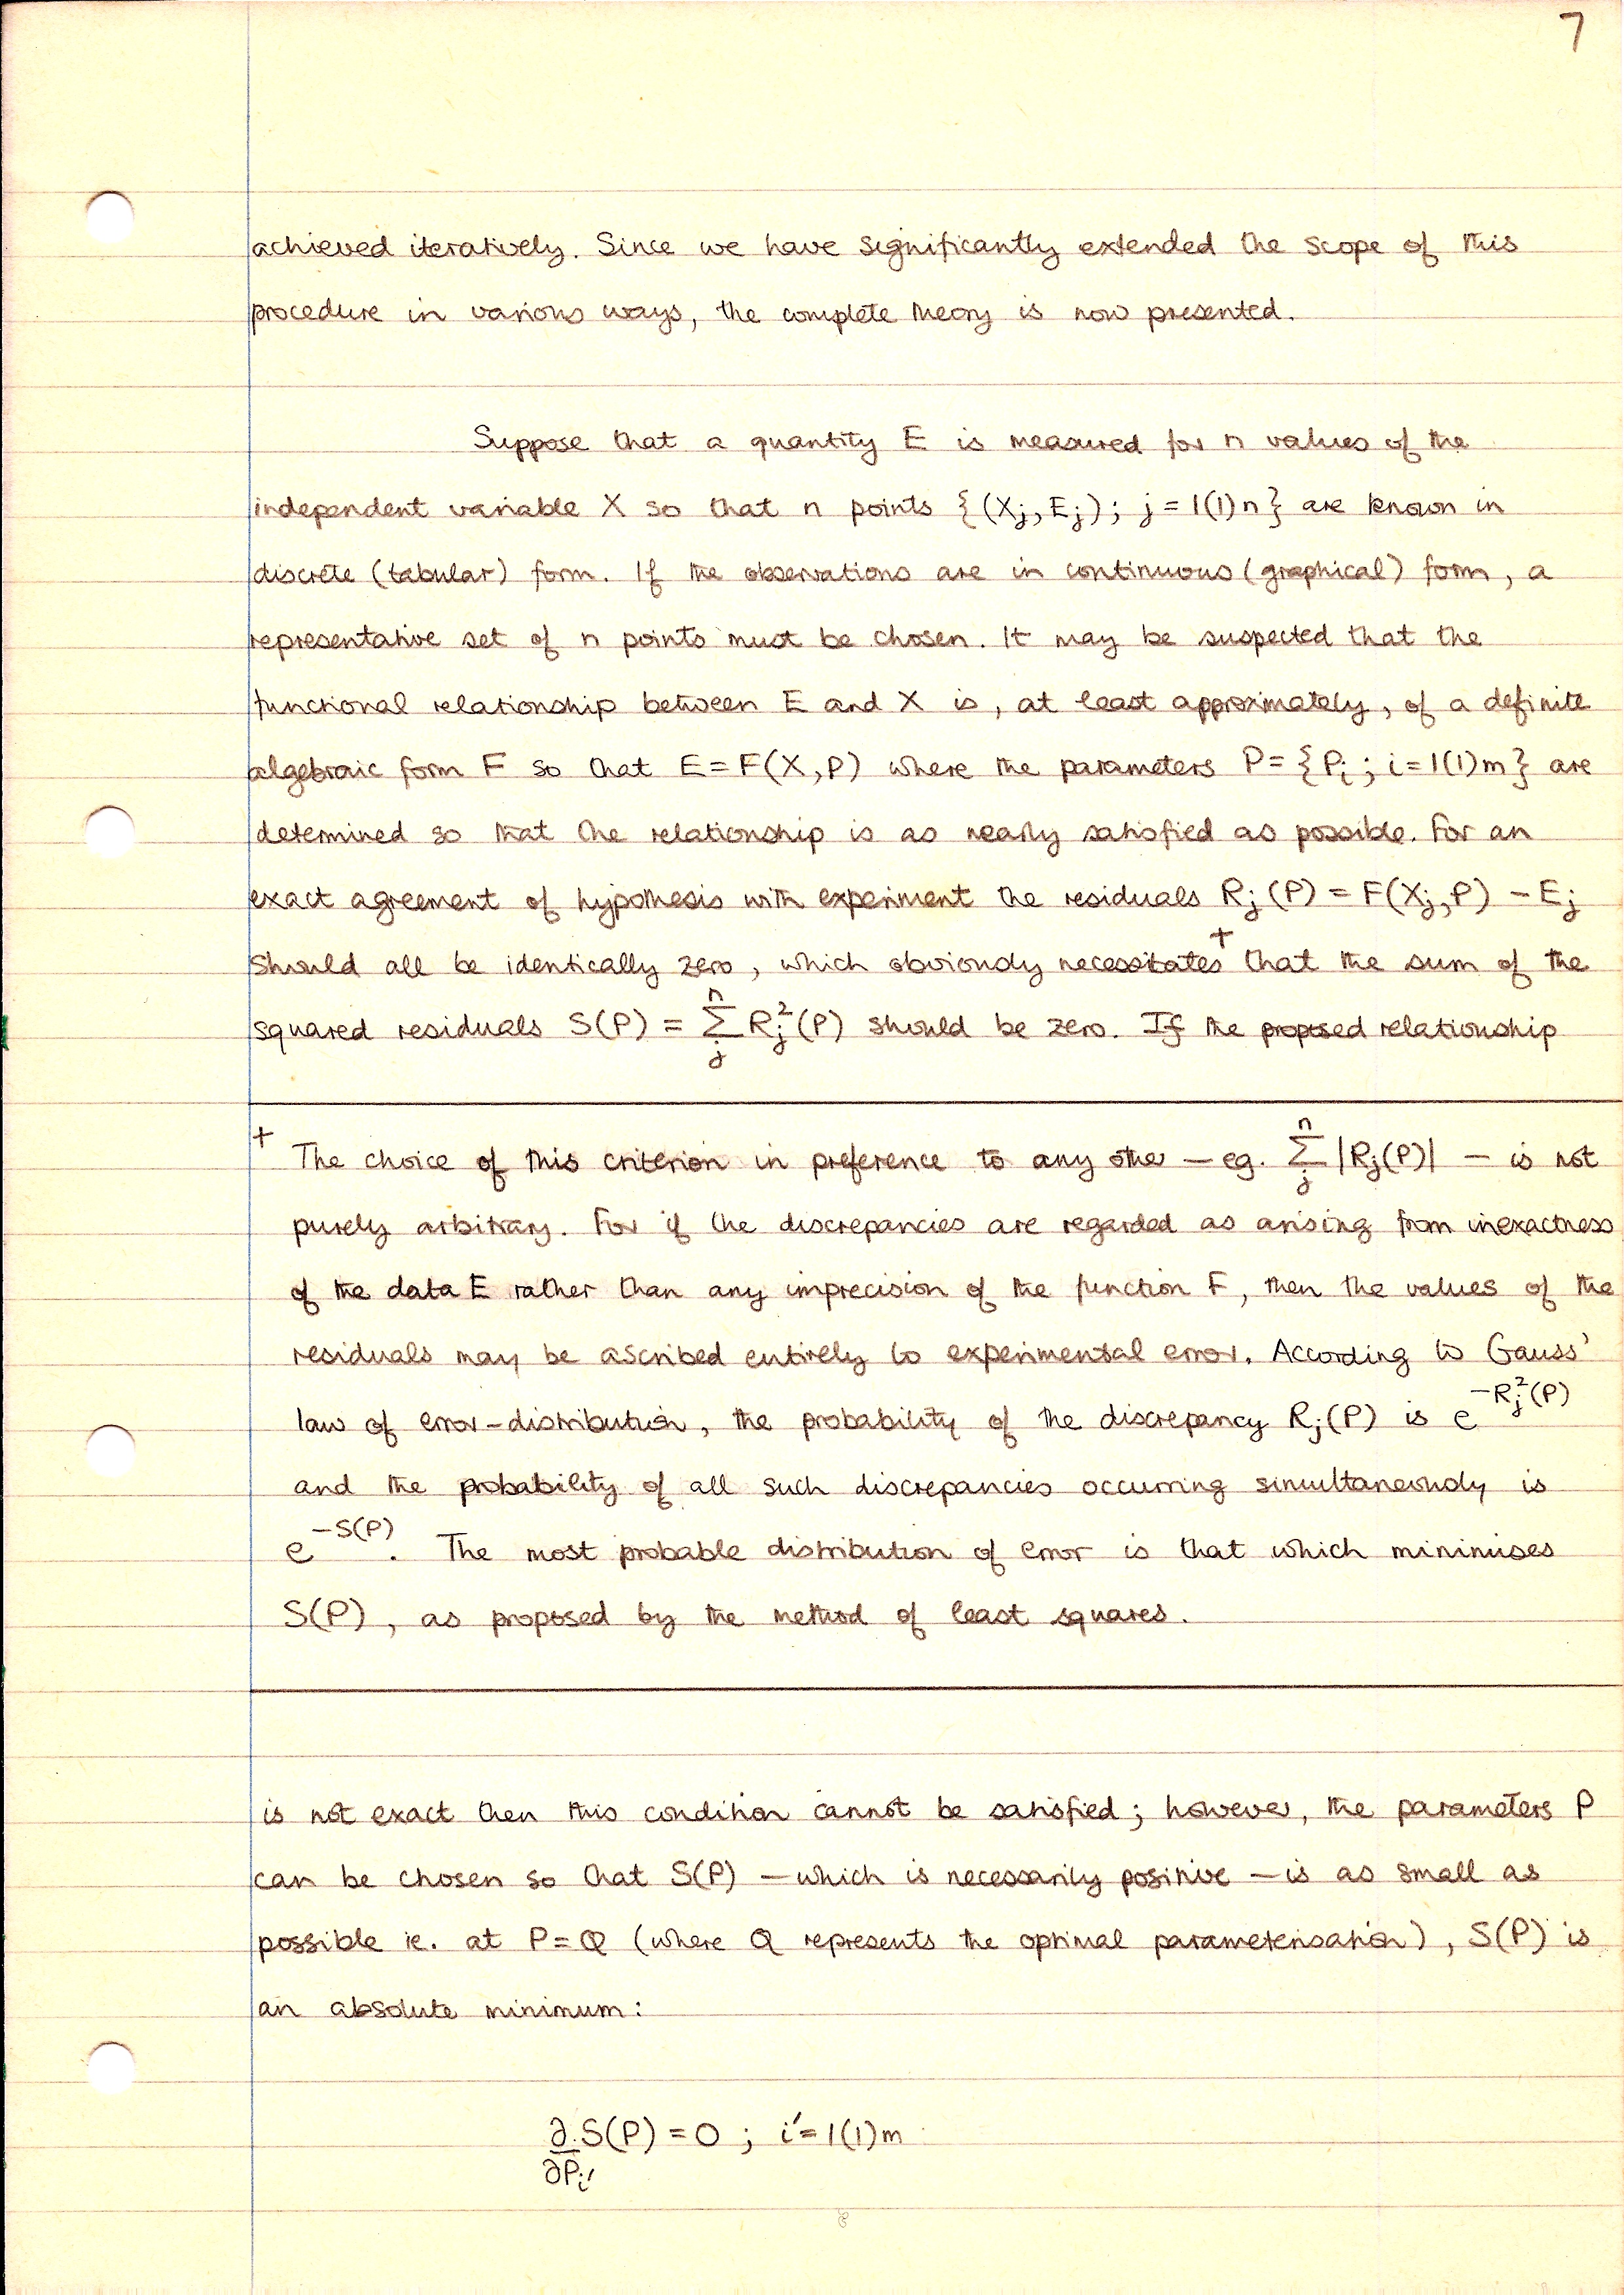 7
achieved iteratively. Since we have significantly extended the scope of this
procedure in various ways, the complete theory is now presented.
Suppose that a quantity E is measured for n values of the
independent variable X so that n points {(Xj, Ej); j = 1(1)n} are known in
discrete (tabular) form. If the observations are in continuous (graphical) form, a
representative set of n points must be chosen. It may be suspected that the
functional relationship between E and X is, at least approximately, of a definite
algebraic form F so that E = F(X, P) where the parameters P = {Pi; i = 1(1)m} are
determined so that the relationship is as nearly satisfied as possible. For an
exact agreement of hypothesis with experiment the residuals Rj(P) = F(Xj, P) − Ej
should all be identically zero, which obviously necessitates† that the sum of the
squared residuals S(P) = Σⁿⱼ Rj²(P) should be zero. If the proposed relationship
† The choice of this criterion in preference to any other — eg. Σⁿⱼ |Rj(P)| — is not
purely arbitrary. For if the discrepancies are regarded as arising from inexactness
of the data E rather than any imprecision of the function F, then the values of the
residuals may be ascribed entirely to experimental error. According to Gauss'
law of error-distribution, the probability of the discrepancy Rj(P) is e^−Rj²(P)
and the probability of all such discrepancies occurring simultaneously is
e^−S(P). The most probable distribution of error is that which minimises
S(P), as proposed by the method of least squares.
is not exact then this condition cannot be satisfied; however, the parameters P
can be chosen so that S(P) — which is necessarily positive — is as small as
possible ie. at P = Q (where Q represents the optimal parameterisation), S(P) is
an absolute minimum:
∂/∂Pi′ . S(P) = 0 ; i′ = 1(1)m